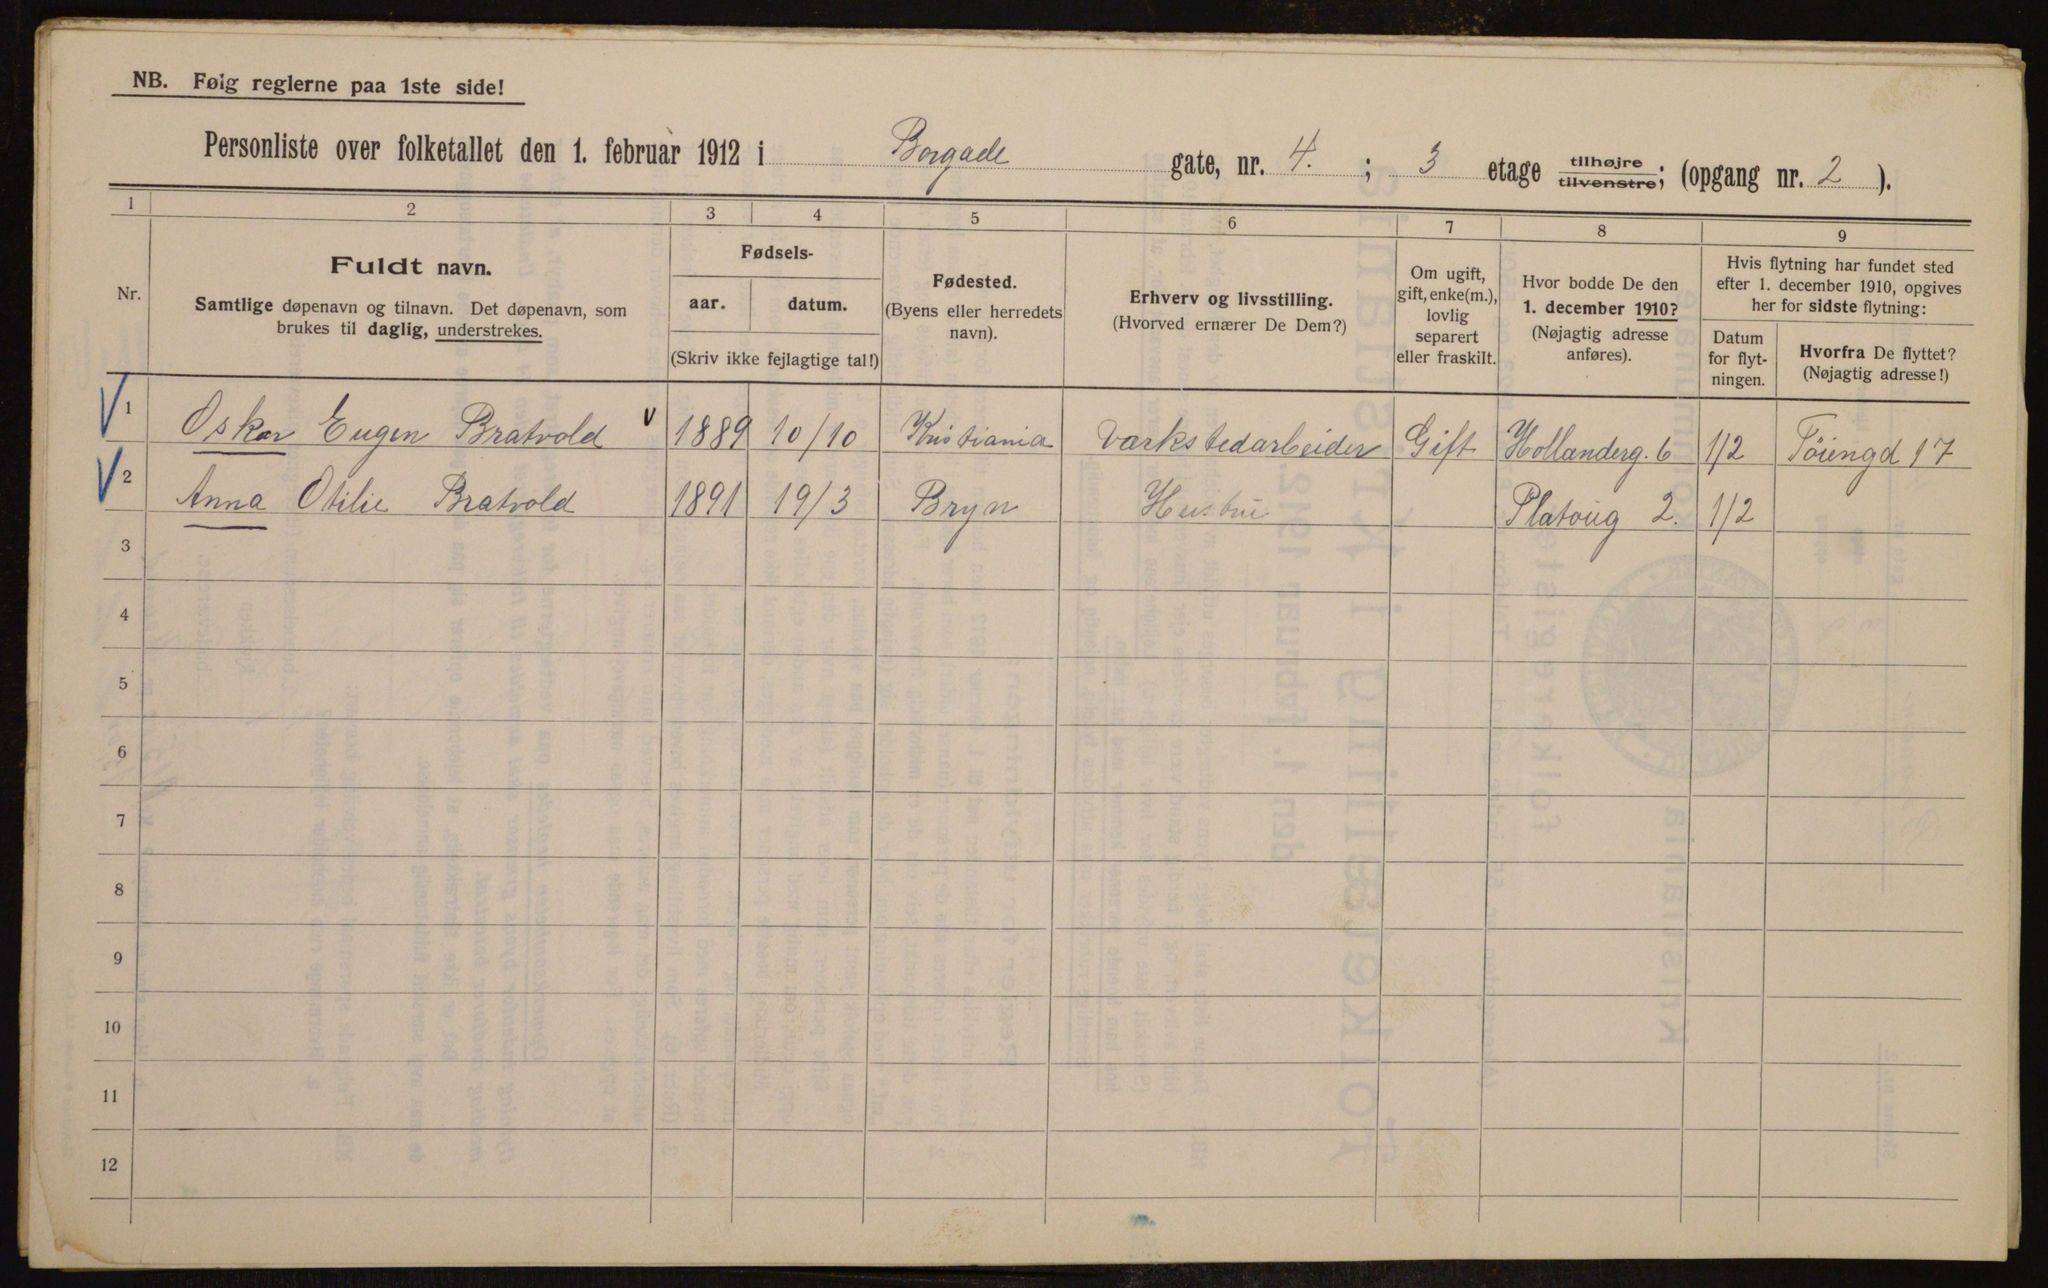 NB. Følg reglerne paa 1ste side!
Personliste over folketallet den 1. februar 1912 i Borgade gate, nr. 4. ; 3 etage tilhøjre tilvenstre; (opgang nr. 2 ).
1 2 3 4 5 6 7 8 9
Nr.
Fuldt navn.
Samtlige døpenavn og tilnavn. Det døpenavn, som
brukes til daglig, understrekes.
Fødsels-
aar. datum.
(Skriv ikke fejlagtige tal!)
Fødested.
(Byens eller herredets
navn).
Erhverv og livsstilling.
(Hvorved ernærer De Dem?)
Om ugift,
gift, enke(m.),
lovlig
separert
eller fraskilt.
Hvor bodde De den
1. december 1910?
(Nøjagtig adresse
anføres).
Hvis flytning har fundet sted
efter 1. december 1910, opgives
her for sidste flytning:
Datum
for flyt-
ningen.
Hvorfra De flyttet?
(Nøjagtig adresse!)
1 Oskar Eugen Bratvold 1889 10/10 Kristiania Værkstedarbeider Gift Hollanderg. 6 1/2 Töiengd 17
2 Anna Otilie Bratvold 1891 19/3 Bryn Hustru Platoug 2. 1/2
3
4
5
6
7
8
9
10
11
12